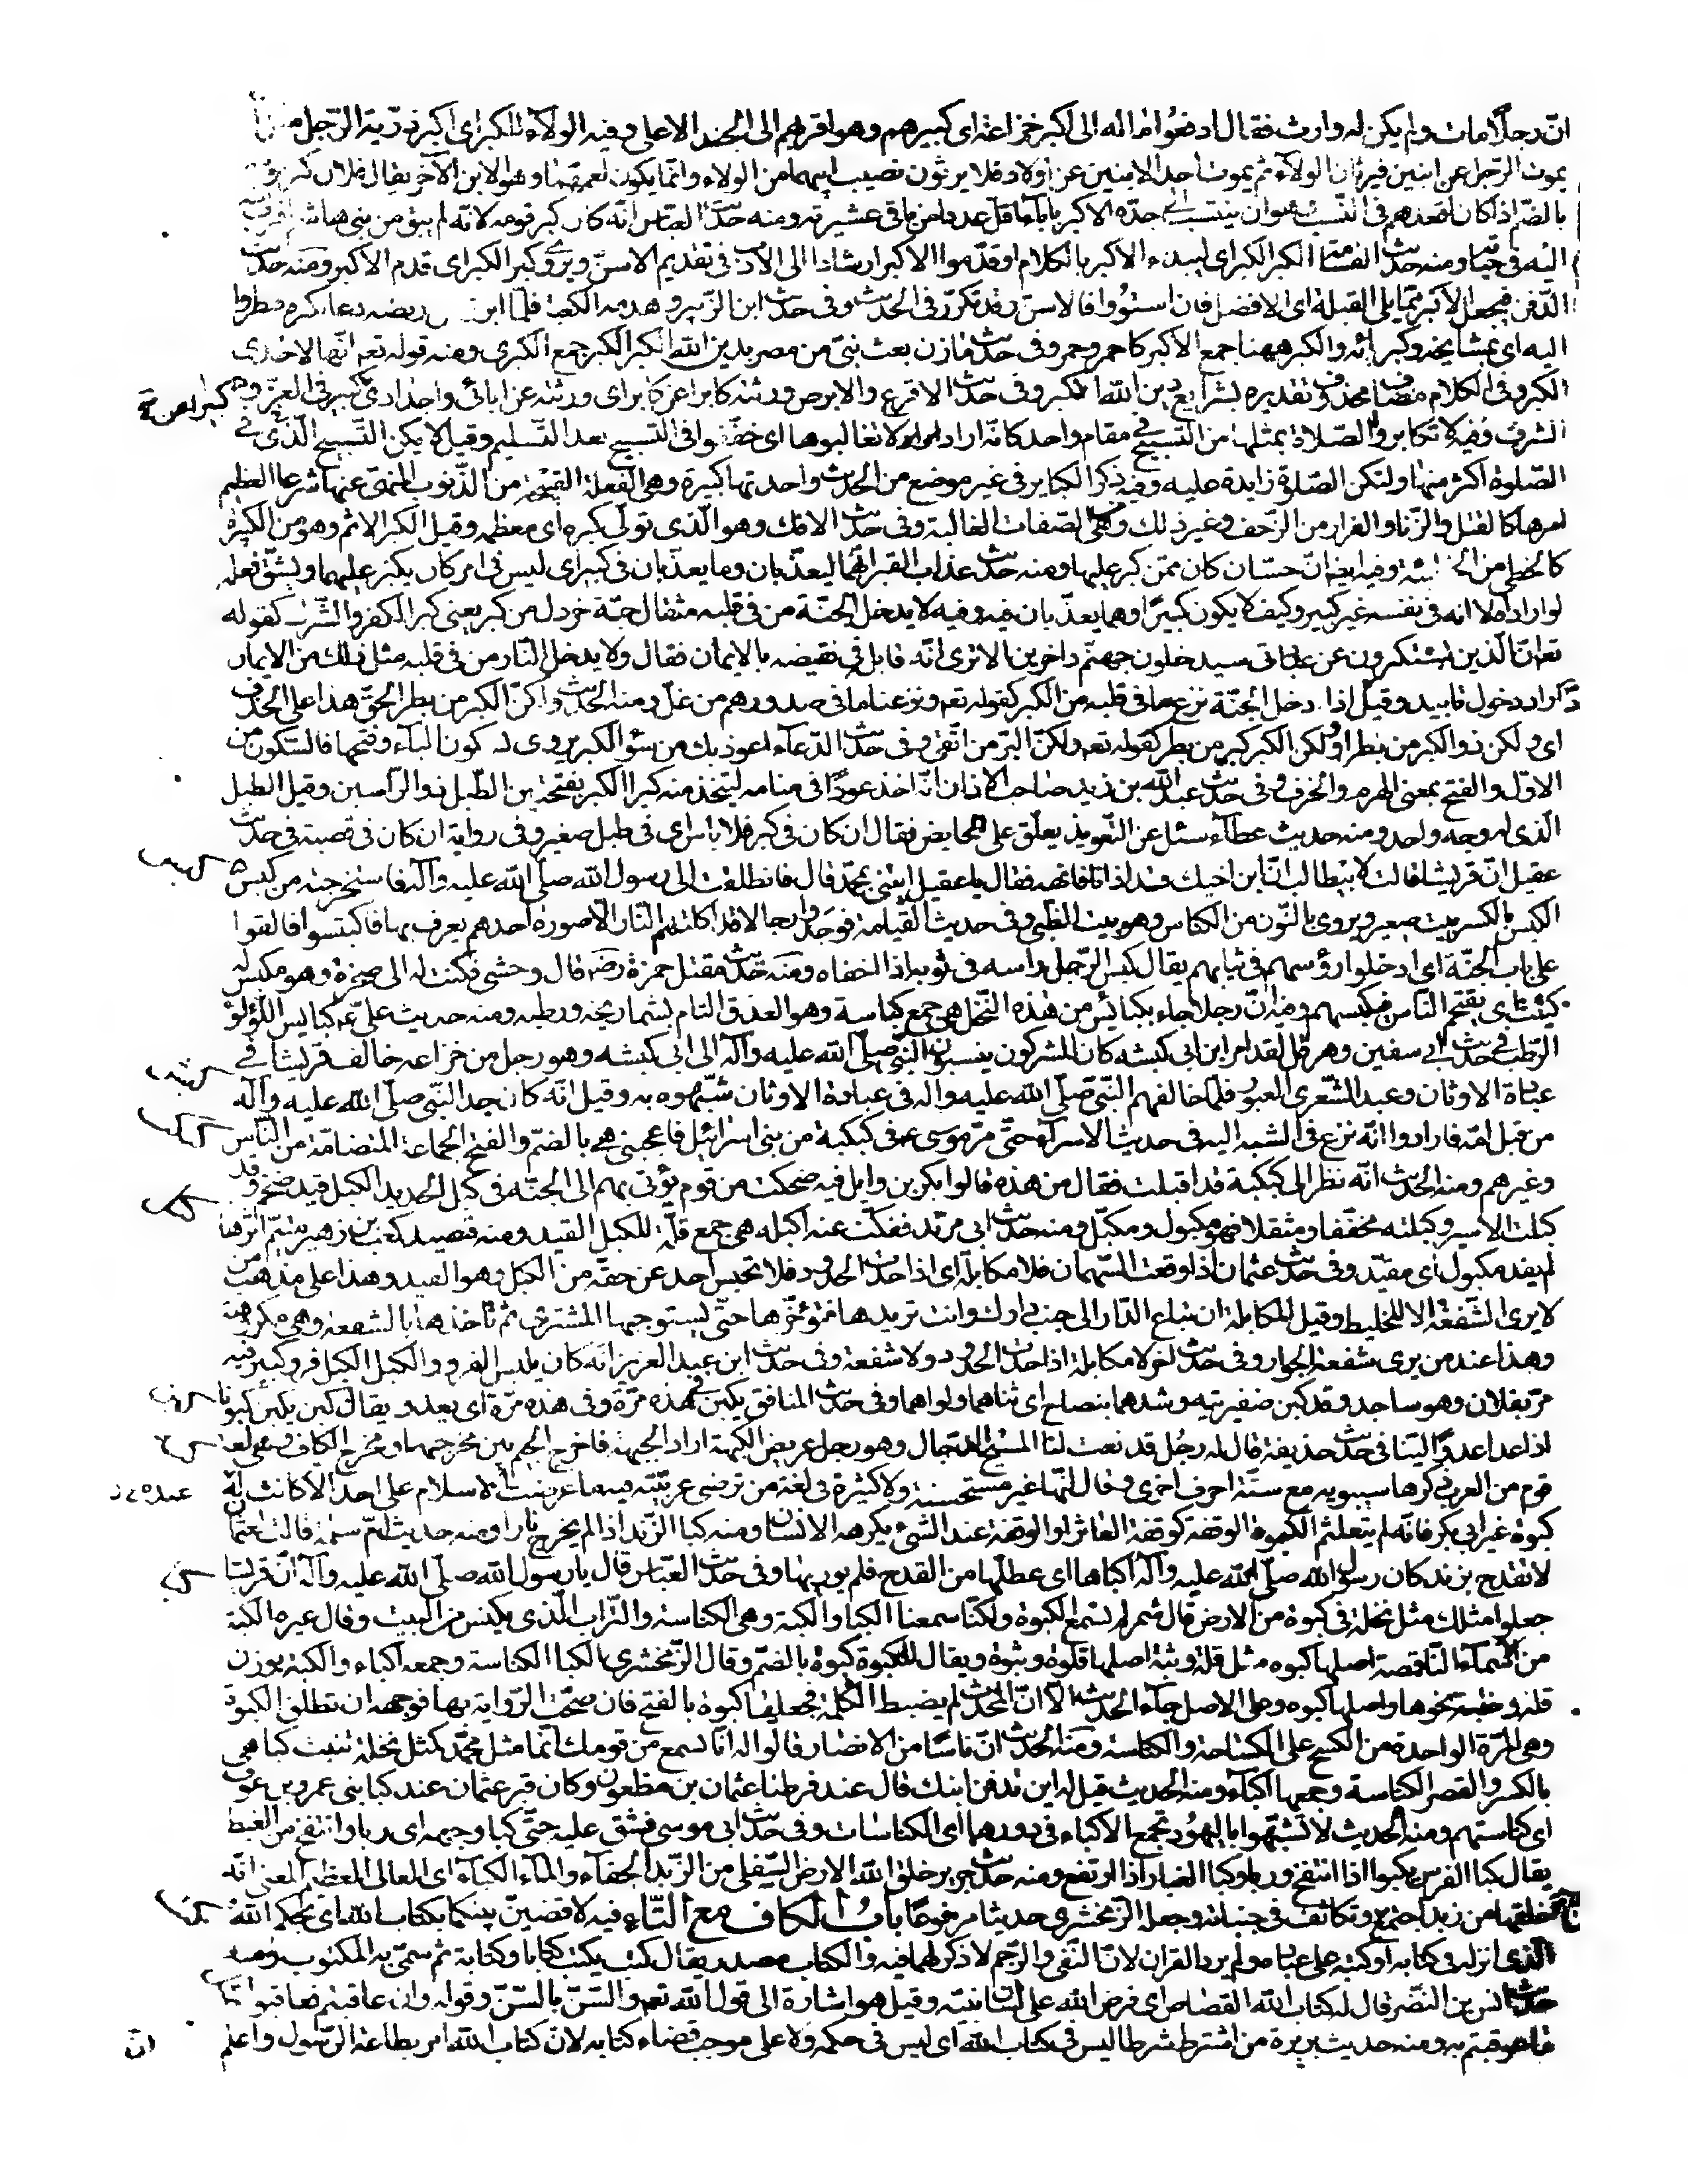 انّ رجلاً مات ولم يكن له وارث فقال ادفعوا ماله الى اكبر خزاعة اى كبيرهم وهو اقربهم الى الجد الاعلى وفيه الولاء للكبر اى اكبر ذرّية الرّجل مثل ان
يموت الرّجل عن ابنين فيرثان الولاء ثم يموت احد الابنين عن اولاد فلا يرثون نصيب ابيهما من الولاء وانّما يكون لعمّهم وهو الابن الآخر يقال فلان كبر قومه
بالضمّ اذا كان اقعدهم فى النّسب وهو ان ينتسب الى جدّه الاكبر باباء اقل عددا من باقى عشيرته ومنه حديث العبّاس انّه كان كبر قومه لانّه لم يبق من بنى هاشم اقرب منه
اليه فى حياته ومنه حديث القسامة الكبر الكبر اى ليبدء الاكبر بالكلام او قدّموا الاكبر ارشادا الى الادب فى تقديم الاسنّ ويروى كبر الكبر اى قدم الاكبر ومنه حديث
الدّفن فيجعل الاكبر ممّا يلى القبلة اى الافضل فان استووا فالاسن وقد تكرّر فى الحديث وفى حديث ابن الزّبير وهدمه الكعبة فلمّا ابرز عن ربضه دعا بكبره فنظروا
اليه اى بمشايخه وكبرائه والكبر ههنا جمع الاكبر كاحمر وحمر وفى حديث مازن بعث نبىّ من مضر بدين الله الكبر الكبر جمع الكبرى ومنه قوله تعه انّها لاحدى
الكبر وفى الكلام مضاف محذوف تقديره بشرايع دين الله الكبر وفى حديث الاقرع والابرص ورثته كابرا عن كابر اى ورثته عن ابائى واجدادى كبيرا عن كبير فى العزّ و
الشرف وفيه لا تكابروا الصّلاة بمثلها من التّسبيح فى مقام واحد كانّه اراد لا تغالبوها اى خفّفوا فى التسبيح بعد التّسليم وقيل لا يكن التّسبيح الّذى فى
الصّلوة اكثر منها ولتكن الصّلوة زايدة عليه وفيه ذكر الكباير فى غير موضع من الحديث واحدتها كبيرة وهى الفعلة القبيحة من الذّنوب المنهى عنها شرعا العظيم
امرها كالقتل والزّنا والفرار من الزّحف وغير ذلك وهى من الصّفات الغالبة وفى حديث الافك وهو الّذى تولّى كبره اى معظمه وقيل الكبر الاثم وهو من الكبيرة
كالخطى من الخطيئة وفيه ايضا انّ حسّان كان ممّن كبر عليها ومنه حديث عذاب القبر انّهما ليعذّبان وما يعذّبان فى كبير اى ليس فى امر كان يكبر عليهما ويشقّ فعله
لو اراداه لا انه فى نفسه غير كبير وكيف لا يكون كبيرًا وهما يعذّبان فيه وفيه لا يدخل الجنّة من فى قلبه مثقال حبّة خردل من كبر يعنى كبر الكفر والشّرك كقوله
تعه انّ الّذين يستكبرون عن عبادتى سيدخلون جهنّم داخرين الا ترى انّه قابل فى نقيضه بالايمان فقال ولا يدخل النّار من فى قلبه مثل ذلك من الايمان
اراد دخول تابيد وقيل اذا دخل الجنّة نزع ما فى قلبه من الكبر كقوله تعه ونزعنا ما فى صدورهم من غلّ ومنه الحديث ولكنّ الكبر من بطر الحقّ هذا على الحذف
اى ولكن ذو الكبر من بطر او ولكن الكبر كبر من بطر كقوله تعه ولكنّ البرّ من اتّقى وفى حديث الدّعاء اعوذ بك من سوء الكبر يروى بسكون الباء وفتحها فالسّكون من
الاوّل والفتح بمعنى الهرم والخرف وفى حديث عبد الله بن زيد صاحب الاذان انّه اخذ عودًا فى منامه ليتخذ منه كبرا الكبر بفتحتين الطّبل ذو الرّاسين وقيل الطبل
الّذى له وجه واحد ومنه حديث عطاء سئل عن التّعويذ يعلّق على الحايض فقال ان كان فى كبر فلا باس اى فى طبل صغير وفى رواية ان كان فى قصبة فى حديث
عقيل انّ قريشا قالت لابيطالب انّ ابن اخيك قد اذانا فانهه فقال يا عقيل ايتنى بمحمّد قال فانطلقت الى رسول الله صلّى الله عليه وآله فاستخرجته من كبس
الكبس بالكسر بيت صغير ويروى بالنّون من الكناس وهو بيت الظّبى وفى حديث القيامة فوجدوا رجالا قد اكلتهم النّار الّا صورة احدهم يعرف بها فاكتبسوا فالقوا
على باب الجنّة اى ادخلوا رؤسهم فى ثيابهم يقال كبس الرّجل راسه فى ثوبه اذا اخفاه ومنه حديث مقتل حمزة رضه قال وحشى فكمنت له الى صخرة وهو مكبس له
كتيت اى يقتحم النّاس فيكبسهم وفيه انّ رجلا جاء بكبائس من هذه النّخل هى جمع كباسة وهو العذق التام بشماريخه ورطبه ومنه حديث علىّ عه كبايس اللّؤلؤ
الرّطب فى حديث ابى سفين وهرقل لقد امر امر ابن ابى كبشه كان المشركون ينسبون النّبى صلّى الله عليه وآله الى ابى كبشه وهو رجل من خزاعه خالف قريشا فى
عبادة الاوثان وعبد الشّعرى العبور فلمّا خالفهم النّبى صلّى الله عليه واله فى عبادة الاوثان شبّهوه به وقيل انّه كان جد النّبى صلّى الله عليه وآله
من قبل امّه فارادوا انّه نزع فى الشبه اليه فى حديث الاسراء حتّى مرّ موسى عه فى كبكبة من بنى اسرائيل فاعجبنى هى بالضمّ والفتح الجماعة المتضامّة من النّاس
وغيرهم ومنه الحديث انّه نظر الى كبكبة قد اقبلت فقال من هذه قالوا بكر بن وايل فيه ضحكت من قوم يؤتى بهم الى الجنّة فى كبل الحديد الكبل قيد ضخم وقد
كبلت الاسير وكبلته مخفّفا ومثقلا فهو مكبول ومكبّل ومنه حديث ابى مرثد ففكّت عنه اكبله هى جمع قلّة للكبل القيد ومنه قصيد كعب بن زهير متيّم اثرها
لم يفد مكبول اى مقيّد وفى حديث عثمان اذا وقعت السّهمان فلا مكابلة اى اذا حدّت الحدود فلا تحبس احد عن حقّه من الكبل وهو القيد وهذا على مذهب من
لا يرى الشّفعة الا للخليط وقيل المكابلة ان تباع الدّار الى جنب دارك وانت تريدها فتؤخّرها حتّى يستوجبها المشترى ثم تاخذها بالشفعه وهى مكروهة
وهذا عند من يرى شفعة الجوار وفى حديث اخر لا مكابلة اذا حدّت الحدود ولا شفعة وفى حديث ابن عبد العزيز انّه كان يلبس الفرو والكبل الكبل فرو كبير فيه
مرّ بفلان وهو ساجد وقد كبن ضفيرتيه وشدهما بنصاح اى ثناهما ولواهما وفى حديث المنافق يكبن فى هذه مرّة وفى هذه مرّة اى يعدو ويقال كبن يكبن كبونا
اذا عدا عدوًا ليّنا فى حديث حذيفة قال له رجل قد نعت لنا المسيح الدّجال وهو رجل عريض الكبهة اراد الجبهة فاخرج الجيم بين مخرجها ومخرج الكاف وهى لغة
قوم من العرب ذكرها سيبويه مع ستّة احرف اخرى وقال انّها غير مستحسنة ولا كثيرة فى لغة من ترضى عربيّته فيه ما عرضت الاسلام على احد الا كانت له
كبوة غير ابى بكر فانّه لم يتعلثم الكبوة الوقفة كوقفة العاثر او الوقفة عند الشىء يكرهه الانسان ومنه كبا الزّند اذا لم يخرج نارا ومنه حديث امّ سلمة قالت لعثمان
لا تقدح بزند كان رسول الله صلّى الله عليه وآله اكباها اى عطلّها من القدح فلم يور بها وفى حديث العبّاس قال يا رسول الله صلّى الله عليه وآله انّ قريشا
جعلوا مثلك مثل نخلة فى كبوة من الارض قال شمر لم نسمع الكبوة ولكنّا سمعنا الكبا والكبة وهى الكناسة والتّراب الّذى يكنس من البيت وقال غيره الكبة
من الاسماء النّاقصة اصلها كبوه مثل قلة وثبة اصلهما قلوة وثبوة ويقال للكبوة كبوة بالضمّ وقال الزّمخشرى الكبا الكناسة وجمعه اكباء والكبة بوزن
قلة وظبة نحوها واصلها كبوه وعلى الاصل جاء الحديث الّا انّ المحدّث لم يضبط الكلمة فجعلها كبوة بالفتح فان صحّت الرّواية بها فوجهه ان تطلق الكبوة
وهى المرّة الواحدة من الكسح على الكساحة والكناسة ومنه الحديث انّ ناسًا من الانصار قالوا له انّا نسمع من قومك انّما مثل محمّد كمثل نخلة تنبت كبا هى
بالكسر والقصر الكناسة وجمعها اكباء ومنه الحديث قيل له اين تدفن ابنك قال عند فرطنا عثمان بن مظعون وكان قبر عثمان عند كبا بنى عمرو بن عوف
اى كناستهم ومنه الحديث لا تشبّهوا باليهود تجمع الاكباء فى دورها اى الكناسات وفى حديث ابى موسى فشقّ عليه حتّى كبا وجهه اى ربا وانتفخ من الغيظ
يقال كبا الفرس يكبوا اذا انتفخ وربا وكبا الغبار اذا ارتفع ومنه حديث جرير خلق الله الارض السّفلى من الزّبد الجفاء والماء الكباء اى العالى العظيم المعنى انّه
خلقها من زبد اجتمع وتكاثف فى جنباته وجعله الزّمخشرى حديثا مرفوعًا باب الكاف مع التّاء فيه لاقضينّ بينكما بكتاب الله اى بحكم الله
الّذى انزله فى كتابه او كتبه على عباده ولم يرد القران لانّ النّفى والرّجم لا ذكر لهما فيه والكتاب مصدر يقال كتب يكتب كتابا وكتابة ثم سمّى به المكتوب ومنه
حديث انس بن النّضر قال له كتاب الله القصاص اى فرض الله على لسان نبيّه وقيل هو اشارة الى قول الله تعه والسّنّ بالسّنّ وقوله وان عاقبتم فعاقبوا بمثل
ما عوقبتم به ومنه حديث بريرة من اشترط شرطا ليس فى كتاب الله اى ليس فى حكمه ولا على موجب قضاء كتابه لانّ كتاب الله امر بطاعة الرّسول واعلم
انّ